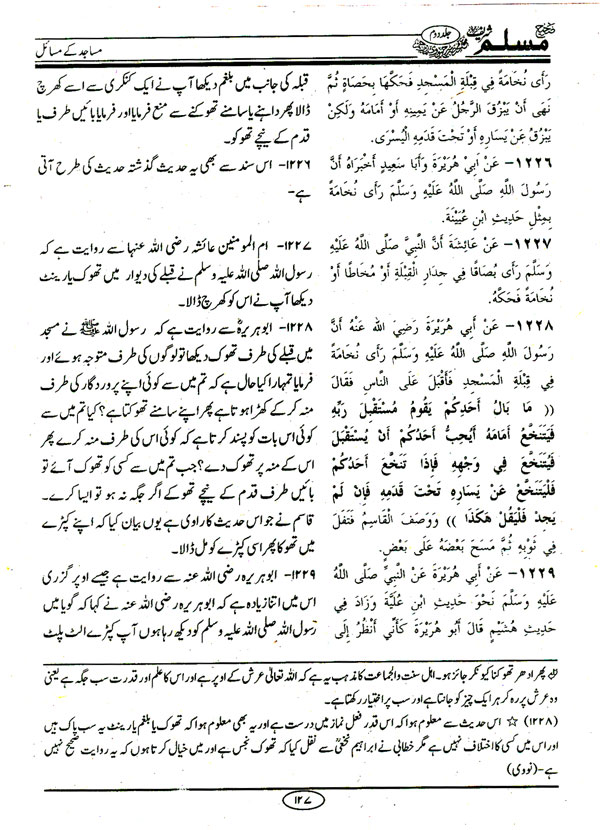 صحیح مسلم شریف جلد دوم
مساجد کے مسائل
رَأَى نُخَامَةً فِي قِبْلَةِ الْمَسْجِدِ فَحَكَّهَا بِحَصَاةٍ ثُمَّ
نَهَى أَنْ يَبْزُقَ الرَّجُلُ عَنْ يَمِينِهِ أَوْ أَمَامَهُ وَلَكِنْ
يَبْزُقُ عَنْ يَسَارِهِ أَوْ تَحْتَ قَدَمِهِ الْيُسْرَى.
١٢٢٦- عَنْ أَبِي هُرَيْرَةَ وَأَبَا سَعِيدٍ أَخْبَرَاهُ أَنَّ
رَسُولَ اللهِ صَلَّى اللَّهُ عَلَيْهِ وَسَلَّمَ رَأَى نُخَامَةً
بِمِثْلِ حَدِيثِ ابْنِ عُيَيْنَةَ.
١٢٢٧- عَنْ عَائِشَةَ أَنَّ النَّبِيَّ صَلَّى اللَّهُ عَلَيْهِ
وَسَلَّمَ رَأَى بُصَاقًا فِي جِدَارِ الْقِبْلَةِ أَوْ مُخَاطًا أَوْ
نُخَامَةً فَحَكَّهُ.
١٢٢٨- عَنْ أَبِي هُرَيْرَةَ رَضِيَ اللهُ عَنْهُ أَنَّ
رَسُولَ اللهِ صَلَّى اللَّهُ عَلَيْهِ وَسَلَّمَ رَأَى نُخَامَةً
فِي قِبْلَةِ الْمَسْجِدِ فَأَقْبَلَ عَلَى النَّاسِ فَقَالَ
(( مَا بَالُ أَحَدِكُمْ يَقُومُ مُسْتَقْبِلَ رَبِّهِ
فَيَتَنَخَّعُ أَمَامَهُ أَيُحِبُّ أَحَدُكُمْ أَنْ يُسْتَقْبَلَ
فَيُتَنَخَّعَ فِي وَجْهِهِ فَإِذَا تَنَخَّعَ أَحَدُكُمْ
فَلْيَتَنَخَّعْ عَنْ يَسَارِهِ تَحْتَ قَدَمِهِ فَإِنْ لَمْ
يَجِدْ فَلْيَقُلْ هَكَذَا )) وَوَصَفَ الْقَاسِمُ فَتَفَلَ
فِي ثَوْبِهِ ثُمَّ مَسَحَ بَعْضَهُ عَلَى بَعْضٍ.
١٢٢٩- عَنْ أَبِي هُرَيْرَةَ عَنِ النَّبِيِّ صَلَّى اللَّهُ
عَلَيْهِ وَسَلَّمَ نَحْوَ حَدِيثِ ابْنِ عُلَيَّةَ وَزَادَ فِي
حَدِيثِ هُشَيْمٍ قَالَ أَبُو هُرَيْرَةَ كَأَنِّي أَنْظُرُ إِلَى
قبلہ کی جانب میں بلغم دیکھا آپ نے ایک کنکری سے اسے کھرچ
ڈالا پھر داہنے یا سامنے تھوکنے سے منع فرمایا اور فرمایا بائیں طرف یا
قدم کے نیچے تھوکو۔
۱۲۲۶- اس سند سے بھی یہ حدیث گذشتہ حدیث کی طرح آتی
ہے-
۱۲۲۷- ام المومنین عائشہ رضی اللہ عنہا سے روایت ہے کہ
رسول اللہ صلی اللہ علیہ وسلم نے قبلے کی دیوار میں تھوک یا رینٹ
دیکھا آپ نے اس کو کھرچ ڈالا۔
۱۲۲۸- ابو ہریرہؓ سے روایت ہے کہ رسول اللہ ﷺ نے مسجد
میں قبلے کی طرف تھوک دیکھا تو لوگوں کی طرف متوجہ ہوئے اور
فرمایا تمہارا کیا حال ہے کہ تم میں سے کوئی اپنے پروردگار کی طرف
منہ کر کے کھڑا ہوتا ہے پھر اپنے سامنے تھوکتا ہے؟ کیا تم میں سے
کوئی اس بات کو پسند کرتا ہے کہ کوئی اس کی طرف منہ کرے پھر
اس کے منہ پر تھوک دے؟ جب تم میں سے کسی کو تھوک آئے تو
بائیں طرف قدم کے نیچے تھوکے اگر جگہ نہ ہو تو ایسا کرے۔
قاسم نے جو اس حدیث کا راوی ہے یوں بیان کیا کہ اپنے کپڑے
میں تھوکا پھر اسی کپڑے کو مل ڈالا۔
۱۲۲۹- ابو ہریرہ رضی اللہ عنہ سے روایت ہے جیسے اوپر گزری
اس میں اتنا زیادہ ہے کہ ابو ہریرہ رضی اللہ عنہ نے کہا کہ گویا میں
رسول اللہ صلی اللہ علیہ وسلم کو دیکھ رہا ہوں آپ کپڑے الٹ پلٹ
پھر ادھر تھوکنا کیونکر جائز ہو۔ اہل سنت والجماعت کا مذہب یہ ہے کہ اللہ تعالیٰ عرش کے اوپر ہے اور اس کا علم اور قدرت سب جگہ ہے یعنی
وہ عرش پر رہ کر ہر ایک چیز کو جانتا ہے اور سب پر اختیار رکھتا ہے۔
(۱۲۲۸) ☆ اس حدیث سے معلوم ہوا کہ اس قدر فعل نماز میں درست ہے اور یہ بھی معلوم ہوا کہ تھوک یا بلغم یا رینٹ یہ سب پاک ہیں
اور اس میں کسی کا اختلاف نہیں ہے مگر خطابی نے ابراہیم نخعیؒ سے نقل کیا کہ تھوک نجس ہے اور میں خیال کرتا ہوں کہ یہ روایت صحیح نہیں
ہے-(نووی)
۱۲۷